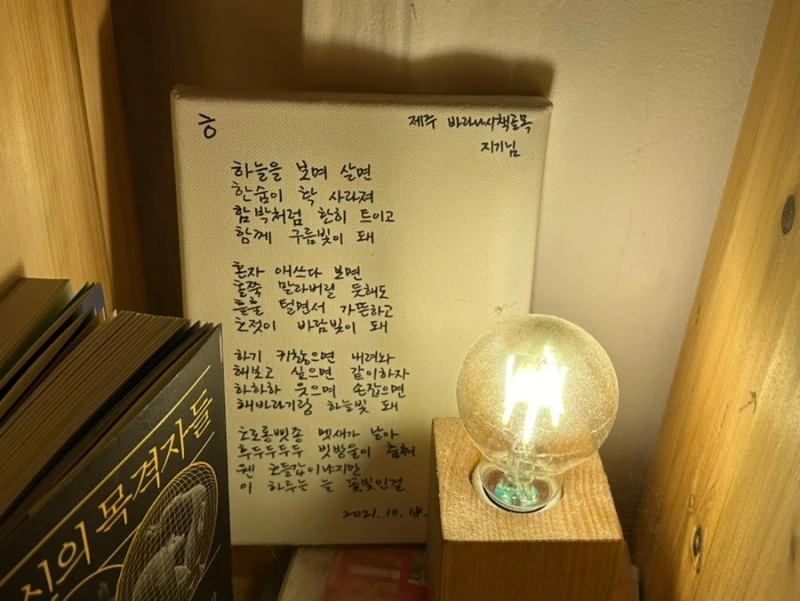 ㅎ
제주 바라나시책골목
지기님
하늘을 보며 살면
한숨이 확 사라져
함박처럼 환히 트이고
함께 구름빛이 돼
혼자 애쓰다 보면
홀쭉 말라버릴 듯해도
훌훌 털면서 가뜬하고
호젓이 바람빛이 돼
하기 귀찮으면 내려놔
해보고 싶으면 같이하자
하하하 웃으며 손잡으면
해바라기랑 하늘빛 돼
호로롱삣쫑 멧새가 날아
후두두두두 빗방울이 춤춰
웬 호들갑이냐지만
이 하루는 늘 꽃빛인걸
2021.10.18.
신의 목격자들